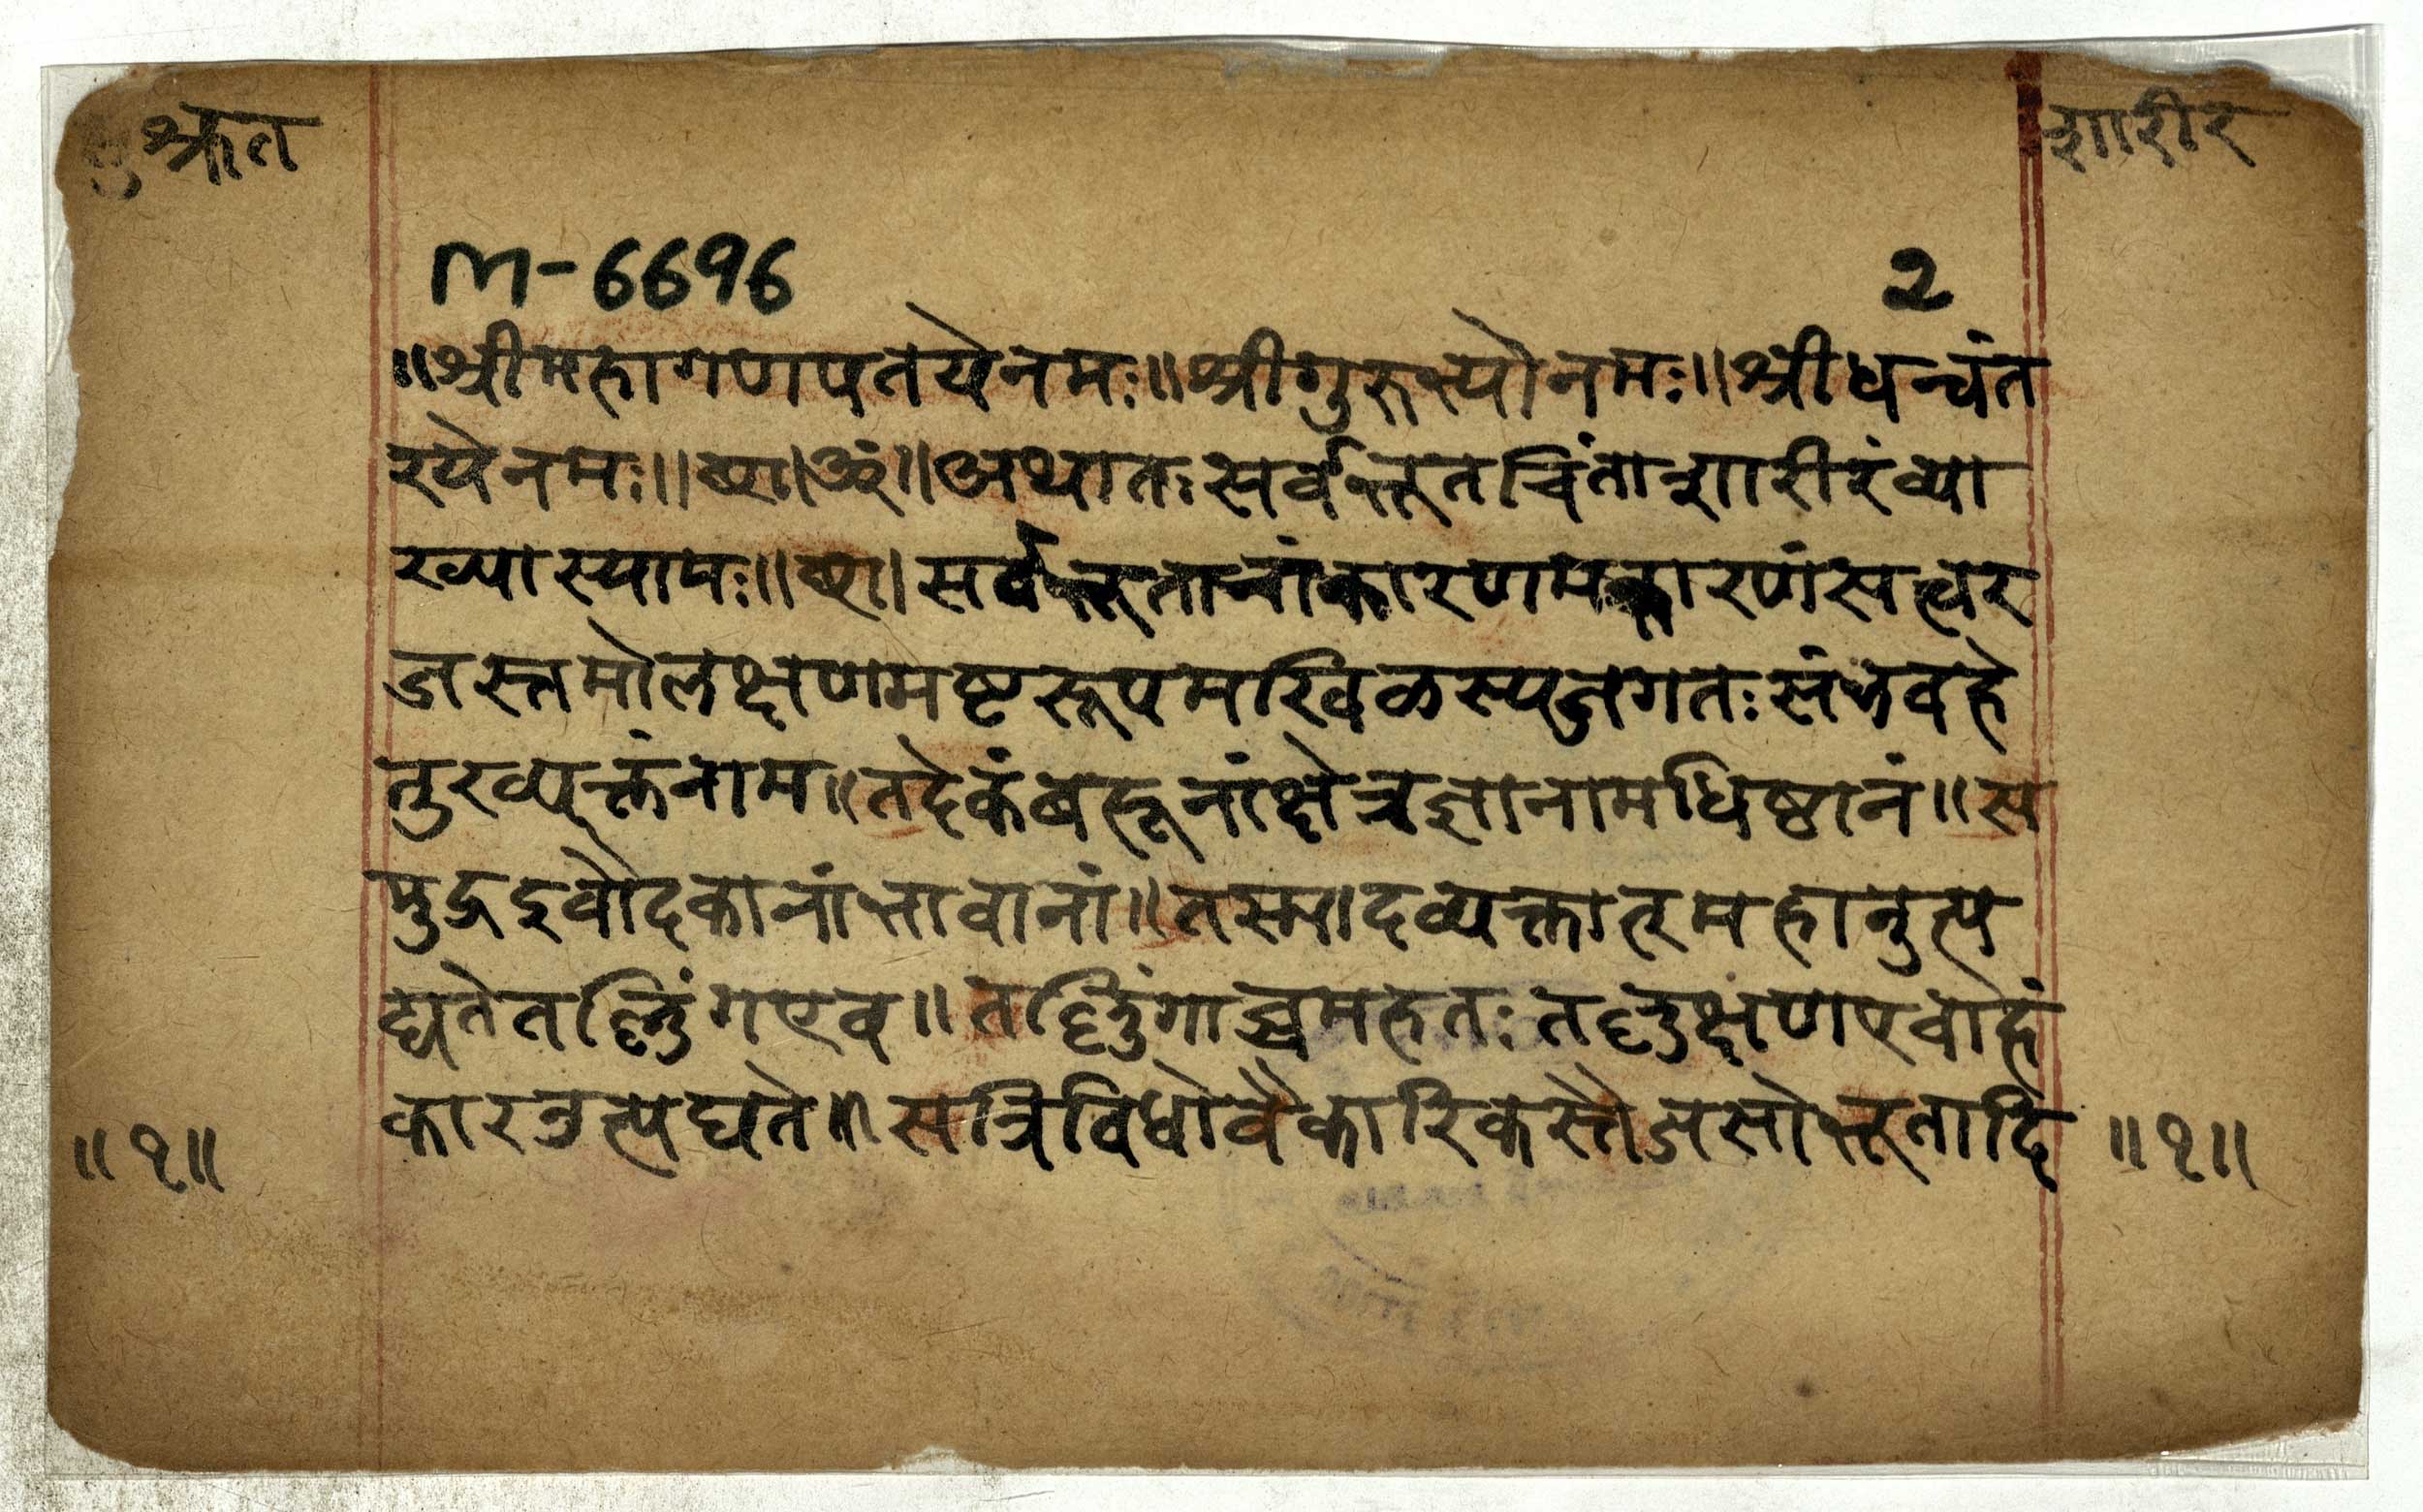 सुश्रुत
शारीर
M-6696
2
॥श्रीमहागणपतयेनमः॥श्रीगुरुभ्योनमः॥श्रीधन्वंत
रयेनमः॥छ॥ॐ॥अथातःसर्वभूतचिंताशारीरंव्या
ख्यास्यामः॥छ॥सर्वभूतानांकारणमकारणंसत्वर
जस्तमोलक्षणमष्टरूपमखिळस्यजगतःसंभवहे
तुरव्यक्तंनाम॥तदेकंबहूनांक्षेत्रज्ञानामधिष्ठानं॥स
मुद्रइवौदकानांभावानां॥तस्मादव्यक्तात्महानुत्प
द्यतेतल्लिंगएव॥तल्लिंगाच्चमहतःतल्लक्षणएवाहं
कारउत्पद्यते॥सत्रिविधोवैकारिकस्तैजसोभूतादि
॥१॥
॥१॥